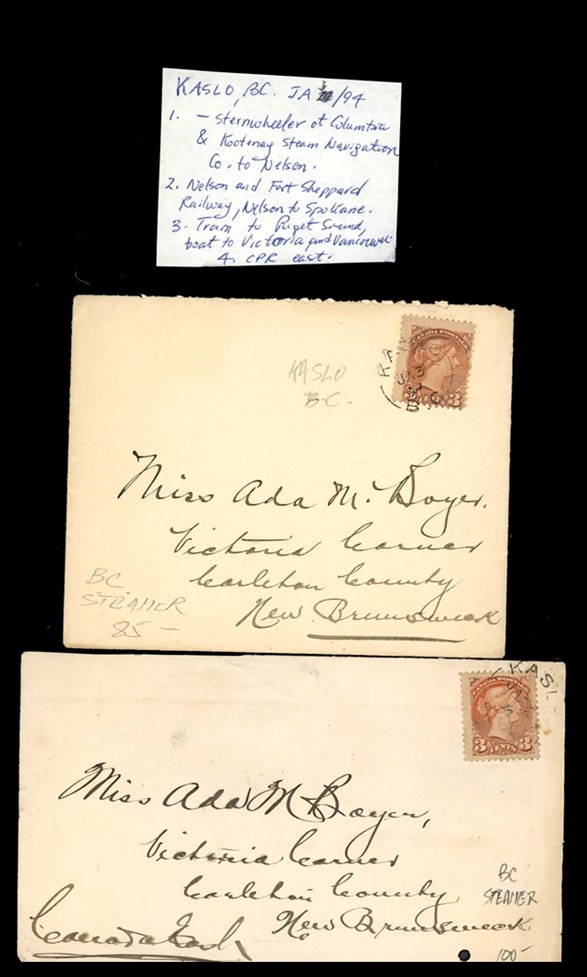 KASLO, BC. JA /94
1. – Sternwheeler of Columbia
& Kootenay Steam Navigation
Co. to Nelson.
2. Nelson and Fort Sheppard
Railway, Nelson to Spokane.
3. Train to Puget Sound,
boat to Victoria and Vancouver
4. CPR east.
CANADA POSTAGE
KA
JA 3
B.C.
3
KASLO
B-C-
Miss Ada M. Boyer.
Victoria Corner
Carleton County
New Brunswick
BC
STEAMER
85 –
KASL
JA
CANADA POSTAGE
3 CENTS 3
Miss Ada M Boyer,
Victoria Corner
Carleton County
New Brunswick
Canada East
BC
STEAMER
100-